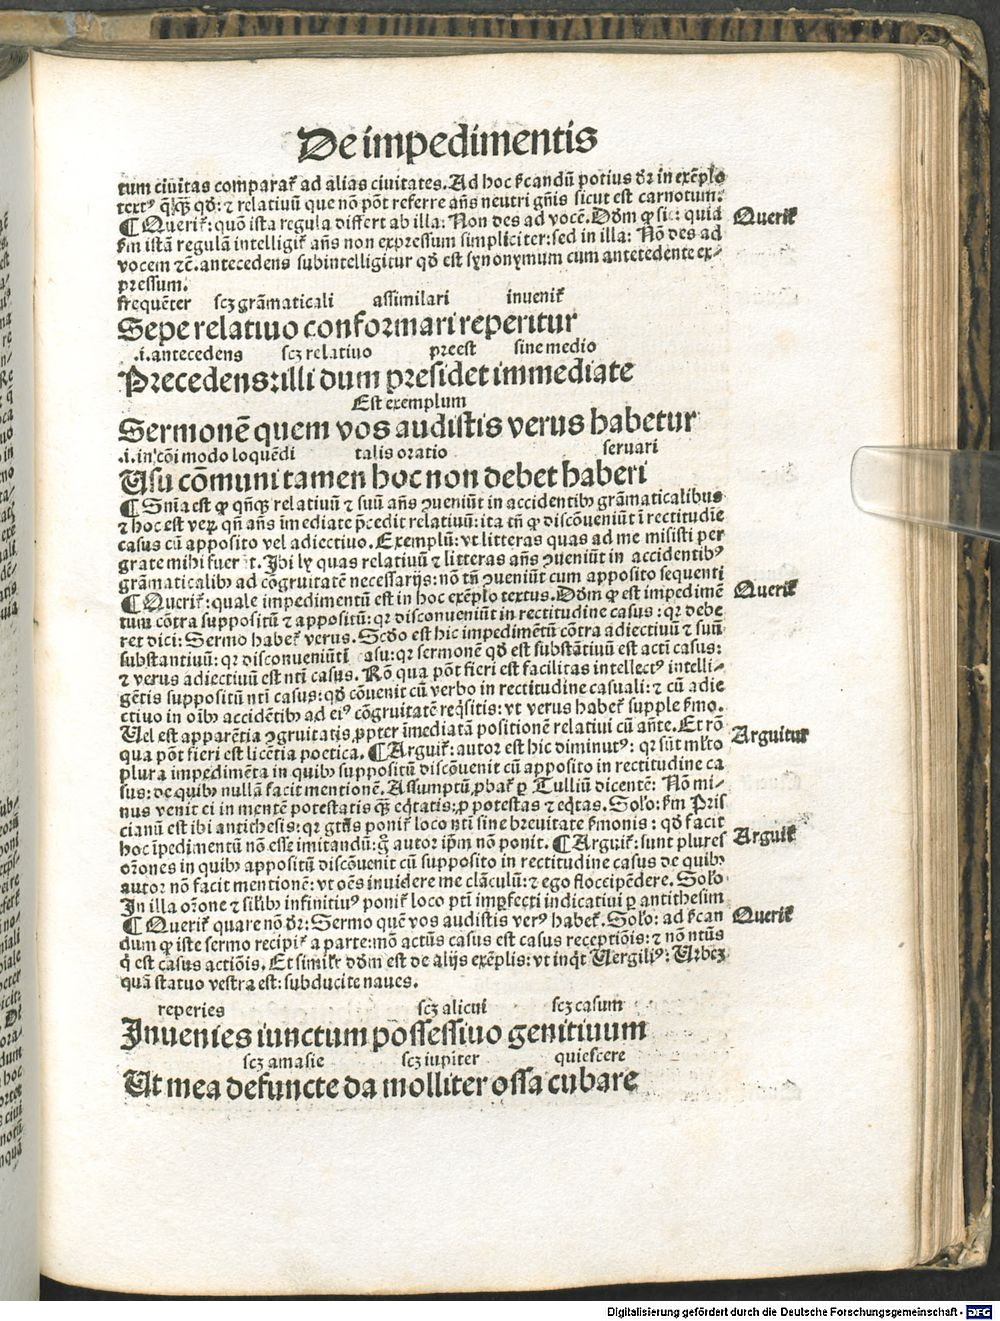 De impedimentis
tum ciuitas comparat᷒ ad alias ciuitates. Ad hoc ẜcandū potius dr̄ in exēplo
textꝰ q̄ꝙ̄ qḋ: ⁊ relatiuū que nō pōt referre añs neutri gñis sicut est carnotum.
¶ Querit᷒: quō ista regula differt ab illa: Non des ad vocē. Dōm ꝙ sic: quia
ẜm istā regulā intelligit᷒ añs non expressum simpliciter: sed in illa: Nō des ad
vocem ⁊c̄. antecedens subintelligitur qḋ est synonymum cum antetedente ex-
pressum.
Querit᷒
frequēter scꝫ grāmaticali assimilari inuenit᷒
Sepe relatiuo conformari reperitur
.i. antecedens scꝫ relatiuo preest sine medio
Precedens: illi dum presidet immediate
Est exemplum
Sermonē quem vos audistis verus habetur
.i. in cōi modo loquēdi talis oratio seruari
Usu cōmuni tamen hoc non debet haberi
¶ Snīa est ꝙ qñꝙ relatiuū ⁊ suū añs ꝯueniūt in accidentibꝰ grāmaticalibus
⁊ hoc est veꝝ qñ añs īmediate p̄cedit relatiuū: ita tñ ꝙ discōueniūt ī rectitudīe
casus cū apposito vel adiectiuo. Exemplū: vt litteras quas ad me misisti per
grate mihi fuer t. Ibi ly quas relatiuū ⁊ litteras añs ꝯueniūt in accidentibꝰ
grāmaticalibꝰ ad cōgruitatē necessarijs: nō tñ ꝯueniūt cum apposito sequenti
¶ Querit᷒: quale impedimentū est in hoc exēplo textus. Dōm ꝙ est impedimē
tum cōtra suppositū ⁊ appositū: qr disconueniūt in rectitudine casus: qr debe
ret dici: Sermo habet᷒ verus. Scḋo est hic impedimētū cōtra adiectiuū ⁊ suū
substantiuū: qr disconueniūt asu: qr sermonē qḋ est substātiuū est acti casus:
⁊ verus adiectiuū est nti casus. Rō qua pōt fieri est facilitas intellectꝰ intelli-
gētis suppositū nti casus: qḋ cōuenit cū verbo in rectitudine casuali: ⁊ cū adie
ctiuo in oībꝰ accidētibꝰ ad eiꝰ cōgruitatē reqͥsitis: vt verus habet᷒ supple ẜmo.
Uel est apparētia ꝯgruitatis ꝓpter īmediatā positionē relatiui cū ante. Et rō
qua pōt fieri est licētia poetica. ¶ Arguit᷒: autor est hic diminutꝰ: qr sūt ml̄to
plura impedimēta in quibꝰ suppositū discōuenit cū apposito in rectitudine ca
sus: de quibꝰ nullā facit mentionē. Assumptū ꝓbat᷒ ꝑ Tulliū dicentē: Nō mi-
nus venit ci in mentē potestatis ꝙ̄ eqͥtatis: ꝓ potestas ⁊ eqͥtas. Solo: ẜm Pris
cianū est ibi antithesis: qr gtūs ponit᷒ loco nti sine breuitate ẜmonis: qḋ facit
hoc īpedimentū nō esse imitandū: gͦ autor ip̄m nō ponit. ¶ Arguit᷒: sunt plures
orōnes in quibꝰ appositū discōuenit cū supposito in rectitudine casus de quibꝰ
autor nō facit mentionē: vt oēs inuidere me clāculū: ⁊ ego floccipēdere. Solo
In illa orōne ⁊ silibꝰ infinitiuꝰ ponit᷒ loco pti imꝑfecti indicatiui ꝑ antithesim
¶ Querit᷒ quare nō dr̄: Sermo quē vos audistis verꝰ habet᷒. Solo: ad ẜcan
dum ꝙ iste sermo recipit᷒ a parte: mō actūs casus est casus receptiōis: ⁊ nō ntūs
q̄ est casus actiōis. Et simil᷒r dōm est de alijs exēplis: vt inqͥt Uergiliꝰ: Urbeꝫ
quā statuo vestra est: subducite naues.
Querit᷒
Arguitur
Arguit᷒
Querit᷒
reperies scꝫ alicui scꝫ casum
Inuenies iunctum possessiuo genitiuum
scꝫ amasie scꝫ iupiter quiescere
Ut mea defuncte da molliter ossa cubare
Digitalisierung gefördert durch die Deutsche Forschungsgemeinschaft - DFG